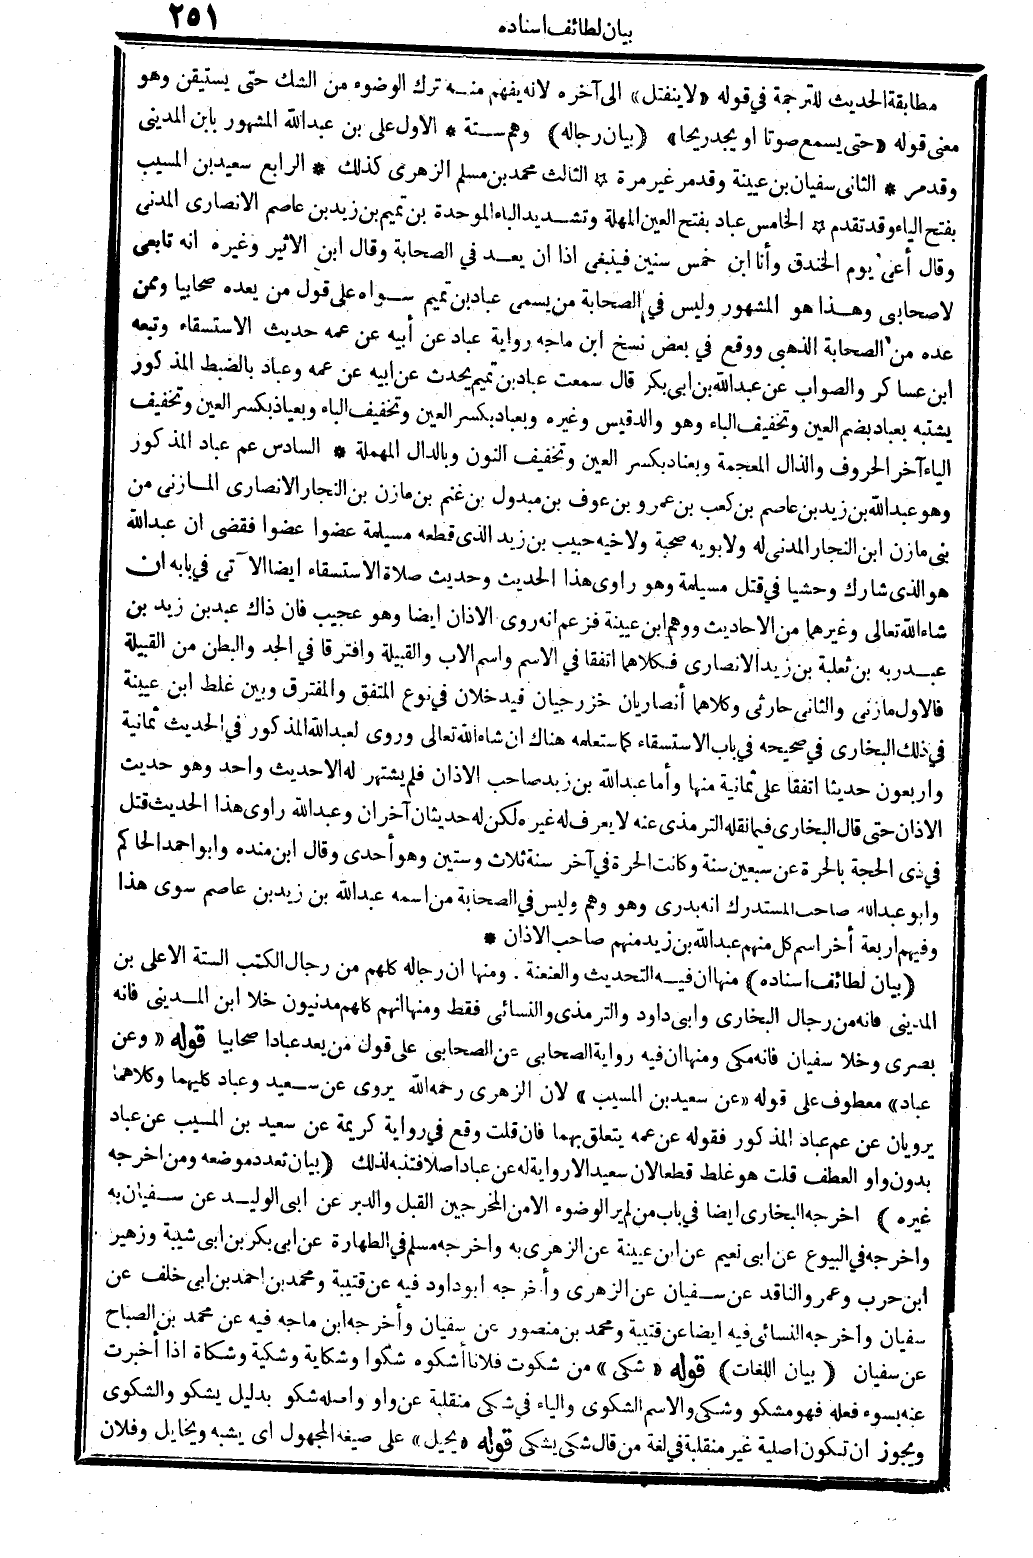 ٢٥١
بيان لطائف اسناده
مطابقة الحديث للترجمة في قوله «لا ينفتل» الى آخره لانه يفهم منه ترك الوضوء من الشك حتى يستيقن وهو
معنى قوله «حتى يسمع صوتا او يجد ريحا» (بيان رجاله) وهم ستة * الاول على بن عبدالله المشهور بابن المدينى
وقد مر * الثانى سفيان بن عيينة وقد مر غير مرة * الثالث محمد بن مسلم الزهرى كذلك * الرابع سعيد بن المسيب
بفتح الياء وقد تقدم * الخامس عباد بفتح العين المهملة وتشديد الباء الموحدة بن تميم بن زيد بن عاصم الانصارى المدنى
وقال أعى يوم الخندق وأنا ابن خمس سنين فينبغى اذا ان يعد في الصحابة وقال ابن الاثير وغيره انه تابعى
لا صحابى وهذا هو المشهور وليس في الصحابة من يسمى عباد بن تميم سواه على قول من يعده صحابيا وممن
عده من الصحابة الذهبى ووقع في بعض نسخ ابن ماجه رواية عباد عن أبيه عن عمه حديث الاستسقاء وتبعه
ابن عساكر والصواب عن عبدالله بن ابى بكر قال سمعت عباد بن تميم يحدث عن ابيه عن عمه وعباد بالضبط المذكور
يشتبه بعباد بضم العين وتخفيف الباء وهو والد قيس وغيره وبعباد بكسر العين وتخفيف الباء وبعياذ بكسر العين وتخفيف
الياء آخر الحروف والذال المعجمة وبعناد بكسر العين وتخفيف النون وبالدال المهملة * السادس عم عباد المذكور
وهو عبدالله بن زيد بن عاصم بن كعب بن عمرو بن عوف بن مبدول بن غنم بن مازن بن النجار الانصارى المازنى من
بنى مازن ابن النجار المدنى له ولابويه صحبة ولاخيه حبيب بن زيد الذى قطعه مسيلمة عضوا عضوا فقضى ان عبدالله
هو الذى شارك وحشيا في قتل مسيلمة وهو راوى هذا الحديث وحديث صلاة الاستسقاء ايضا الآتى في بابه ان
شاء الله تعالى وغيرهما من الاحاديث ووهم ابن عيينة فزعم انه روى الاذان ايضا وهو عجيب فان ذاك عبد بن زيد بن
عبد ربه بن ثعلبة بن زيد الانصارى فكلاهما اتفقا في الاسم واسم الاب والقبيلة وافترقا في الجد والبطن من القبيلة
فالاول مازنى والثانى حارثى وكلاهما أنصاريان خزرجيان فيدخلان في نوع المتفق والمفترق وبين غلط ابن عيينة
في ذلك البخارى في صحيحه في باب الاستسقاء كما ستعلمه هناك ان شاء الله تعالى وروى لعبدالله المذكور في الحديث ثمانية
واربعون حديثا اتفقا على ثمانية منها وأما عبدالله بن زيد صاحب الاذان فلم يشتهر له الا حديث واحد وهو حديث
الاذان حتى قال البخارى فيما نقله الترمذى عنه لا يعرف له غيره لكن له حديثان آخران وعبدالله راوى هذا الحديث قتل
في ذى الحجة بالحرة عن سبعين سنة وكانت الحرة في آخر سنة ثلاث وستين وهو أحدى وقال ابن منده وابو احمد الحاكم
وابو عبدالله صاحب المستدرك انه بدرى وهو وهم وليس في الصحابة من اسمه عبدالله بن زيد بن عاصم سوى هذا
وفيهم اربعة أخر اسم كل منهم عبدالله بن زيد منهم صاحب الاذان *
(بيان لطائف اسناده) منها ان فيه التحديث والعنعنة . ومنها ان رجاله كلهم من رجال الكتب الستة الا على بن
المدينى فانه من رجال البخارى وابى داود والترمذى والنسائى فقط ومنها انهم كلهم مدنيون خلا ابن المدينى فانه
بصرى وخلا سفيان فانه مكى ومنها ان فيه رواية الصحابى عن الصحابى على قول من يعد عبادا صحابيا قوله «وعن
عباد» معطوف على قوله «عن سعيد بن المسيب» لان الزهرى رحمه الله يروى عن سعيد وعباد كليهما وكلاهما
يرويان عن عم عباد المذكور فقوله عن عمه يتعلق بهما فان قلت وقع في رواية كريمة عن سعيد بن المسيب عن عباد
بدون واو العطف قلت هو غلط قطعا لان سعيدا لا رواية له عن عباد اصلا فتنبه لذلك (بيان تعدد موضعه ومن اخرجه
غيره) اخرجه البخارى ايضا في باب من لم ير الوضوء الا من المخرجين القبل والدبر عن ابى الوليد عن سفيان به
واخرجه في البيوع عن ابى نعيم عن ابن عيينة عن الزهرى به واخرجه مسلم في الطهارة عن ابى بكر بن ابى شيبة وزهير
ابن حرب وعمرو الناقد عن سفيان عن الزهرى وأخرجه ابو داود فيه عن قتيبة ومحمد بن احمد بن ابى خلف عن
سفيان واخرجه النسائى فيه ايضا عن قتيبة ومحمد بن منصور عن سفيان وأخرجه ابن ماجه فيه عن محمد بن الصباح
عن سفيان (بيان اللغات) قوله «شكى» من شكوت فلانا أشكوه شكوا وشكاية وشكية وشكاة اذا أخبرت
عنه بسوء فعله فهو مشكو وشكى والاسم الشكوى والياء في شكى منقلبة عن واو واصله شكو بدليل يشكو والشكوى
ويجوز ان تكون اصلية غير منقلبة في لغة من قال شكى يشكى قوله «يخيل» على صيغه المجهول اى يشبه ويخايل وفلان